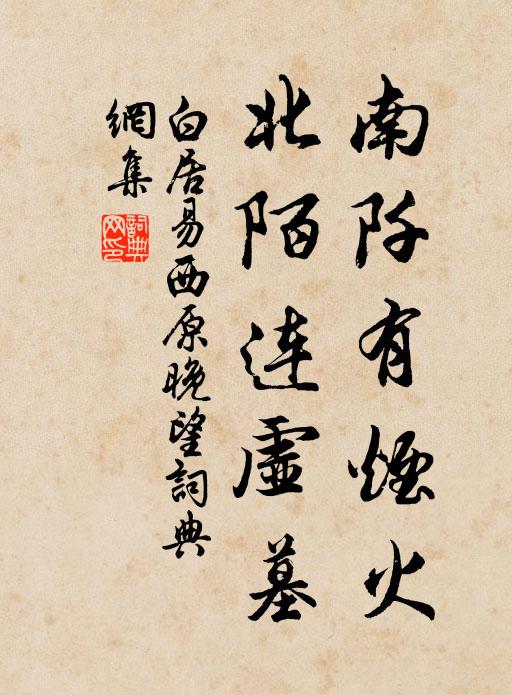 南阡有煙火
北陌連虛墓
白居易西原晚望詞典
網集
詞典網印